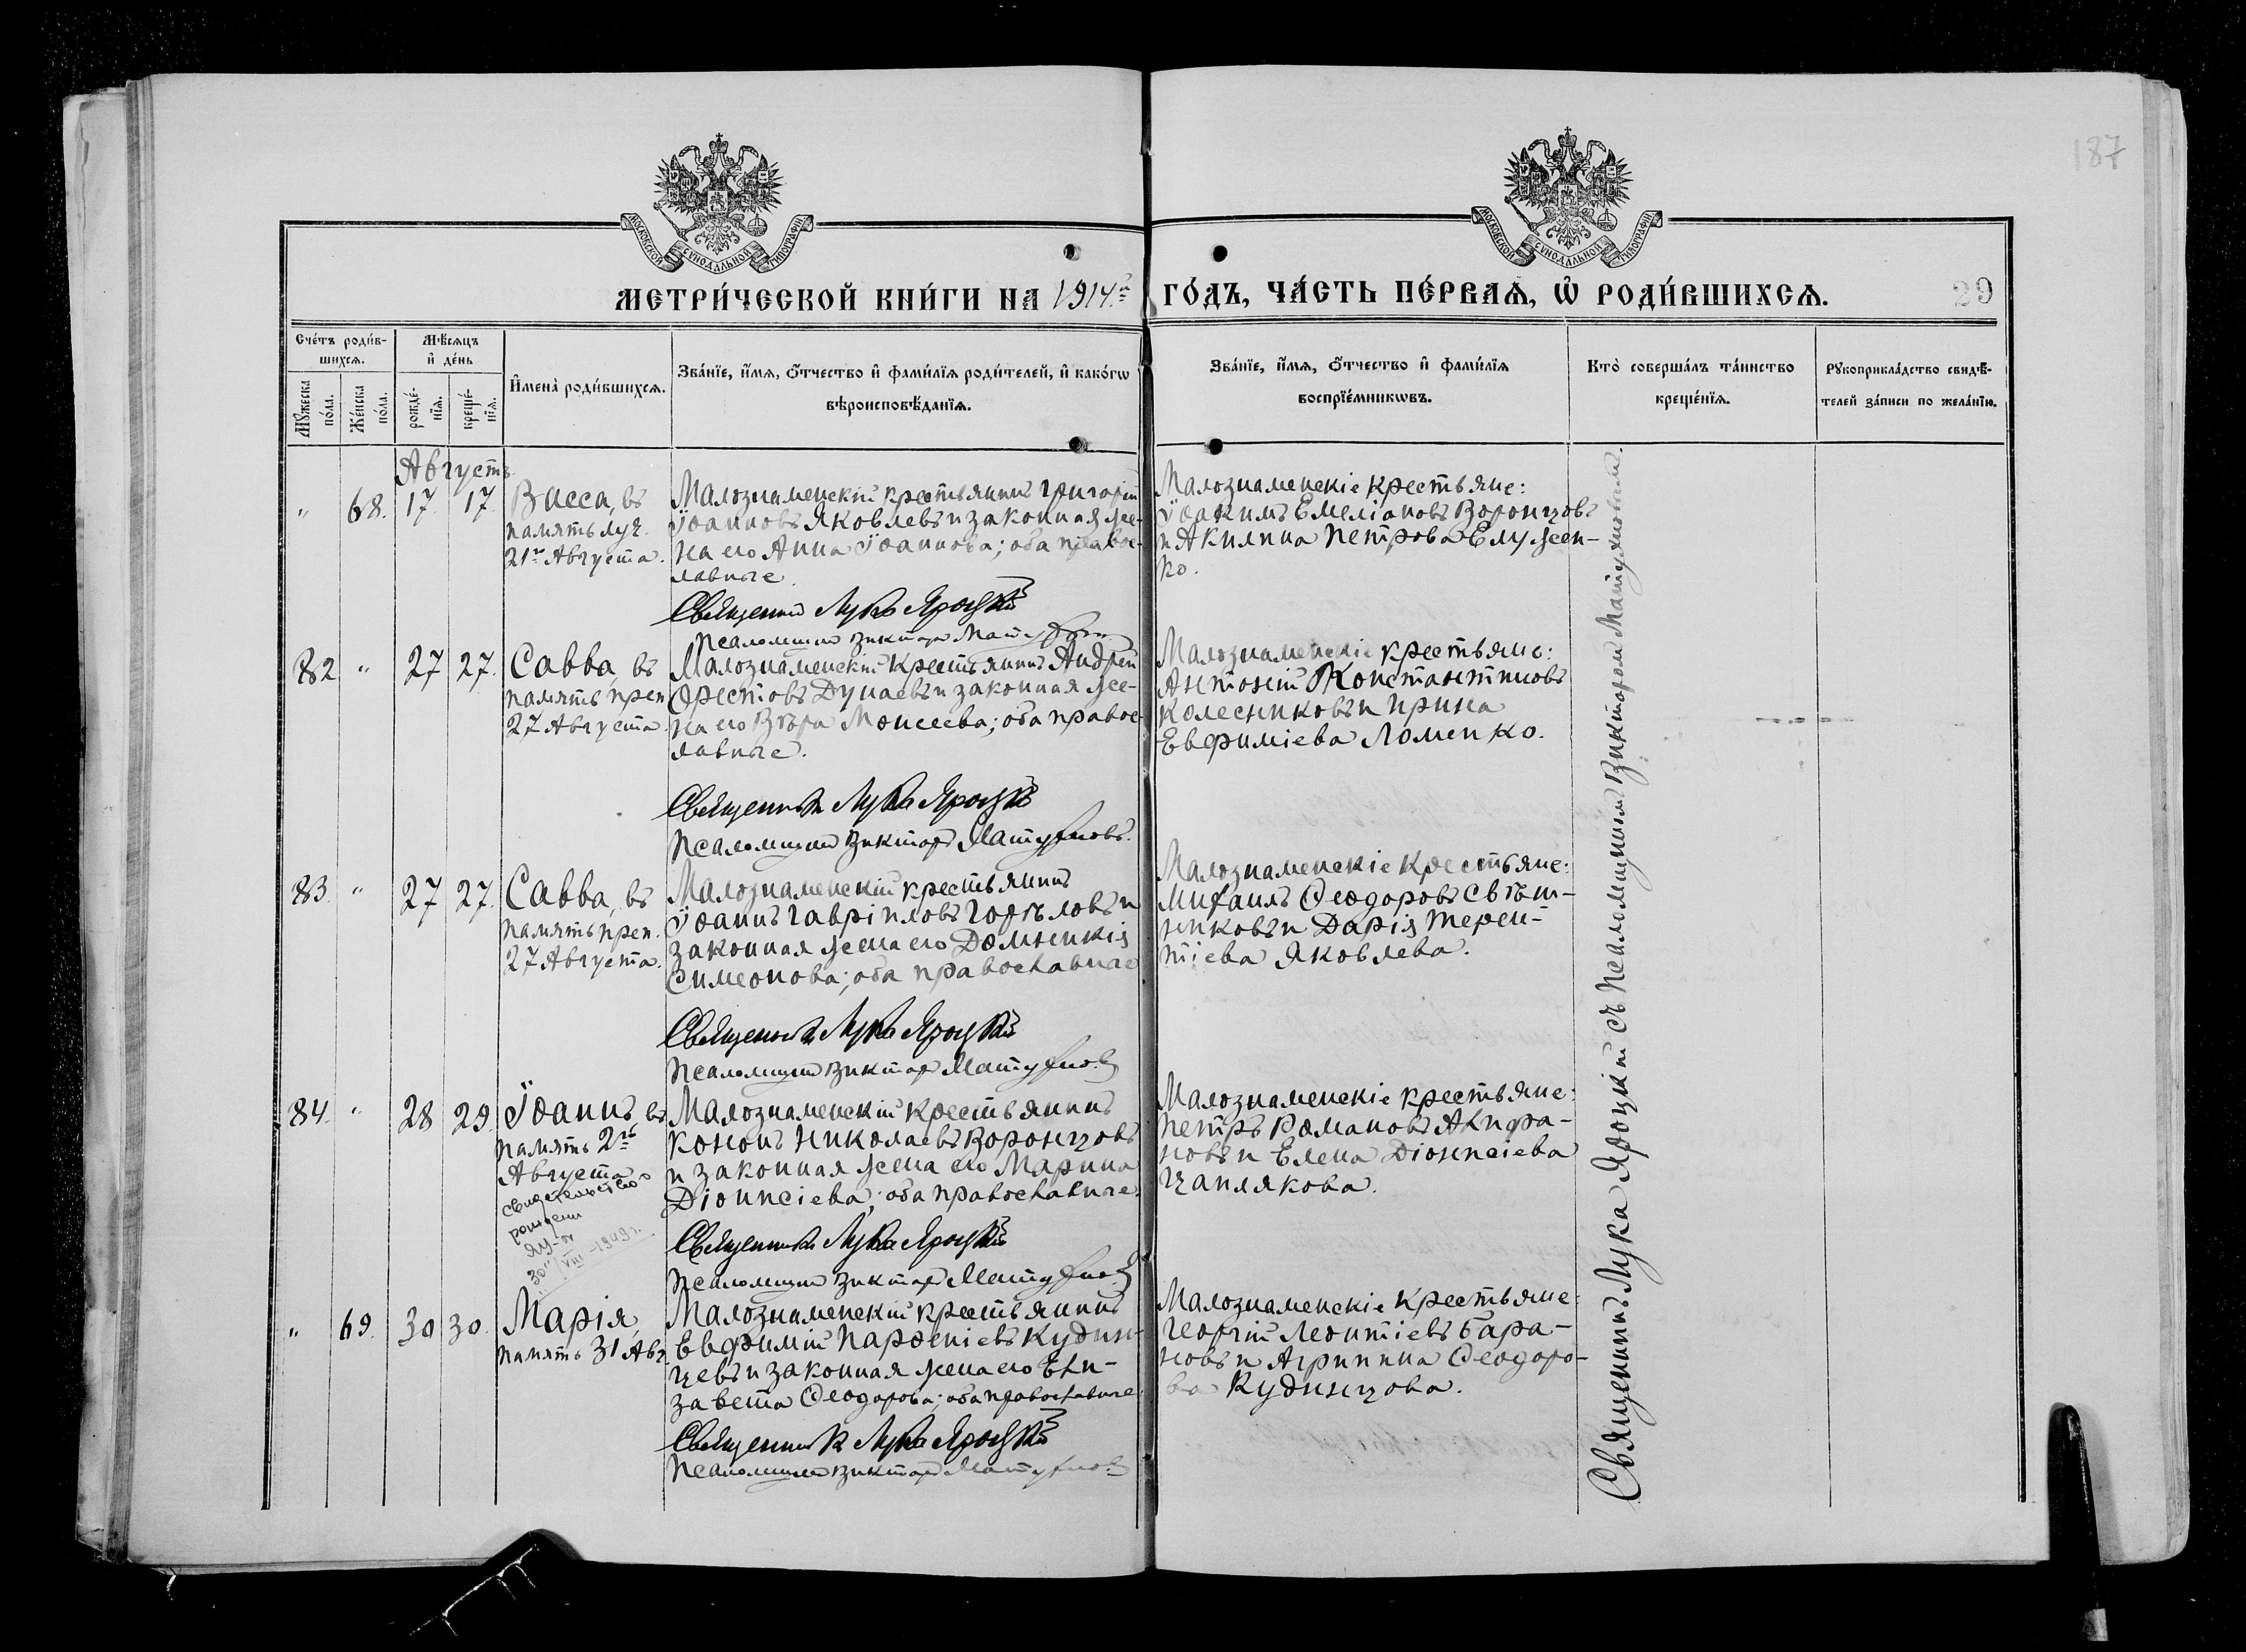 187
МОСКОВСКОЙ СѴНОДАЛЬНОЙ ТИПОГРАФІИ
МОСКОВСКОЙ СѴНОДАЛЬНОЙ ТИПОГРАФІИ
МЕТРИ́ЧЕСКОЙ КНИ́ГИ НА 1914й ГО́ДЪ, ЧА́СТЬ ПЕ́РВАѦ, Ѽ РОДИ́ВШИХСѦ.
29
Сче́тъ роди́в-
шихсѧ.
Мꙋ́жеска
по́ла.
Же́нска
по́ла.
Мѣ́сѧцъ
и҆ де́нь
рожде́-
нїѧ.
креще́-
нїѧ.
И҆мена̀ роди́вшихсѧ.
Зва́нїе, и҆́мѧ, ѻ҆́тчество и҆ фами́лїѧ роди́телей, и҆ како́гѡ
вѣроисповѣ́данїѧ.
Зва́нїе, и҆́мѧ, ѻ҆́тчество и҆ фами́лїѧ
воспрїе́мникѡвъ.
Кто̀ соверша́лъ та́инство
креще́нїѧ.
Рꙋкоприкла́дство свидѣ́-
телей за́писи по жела́нїю.
Августъ
" 68. 17. 17.
Васса, въ
память муч.
21го Августа.
Малознаменскій крестьянинъ Григорій
Іоанновъ Яковлевъ и законная же-
на его Анна Іоаннова; оба право-
славные.
Священникъ Лука Яроцкій
Псаломщикъ Викторъ Матухновъ
Малознаменскіе крестьяне:
Іоакимъ Емеліановъ Воронцовъ
и Акилина Петрова Елужен-
ко.
82 " 27 27.
Савва, въ
память преп
27 Августа.
Малознаменскій крестьянинъ Андрей
Орестовъ Дунаевъ и законная же-
на его Вѣра Моисеева; оба правос-
лавные.
Священникъ Лука Яроцкій
Псаломщикъ Викторъ Матухновъ.
Малознаменскіе крестьяне:
Антоній Константиновъ
Колесниковъ и Ирина
Евфиміева Ломенко.
83. " 27 27.
Савва, въ
память преп.
27 Августа.
Малознаменскій крестьянинъ
Іоаннъ Гавріиловъ Горѣловъ и
законная жена его Домникія
Симеонова; оба православные
Священникъ Лука Яроцкій
Псаломщикъ Викторъ Матухновъ
Малознаменскіе крестьяне:
Михаилъ Ѳеодоровъ Свѣт-
никовъ и Дарія Терен-
тіева Яковлева.
84. " 28 29.
Іоаннъ въ
память 2го
Августа
свидетельство о
рождени
30" VIII -1949 г.
Малознаменскій крестьянинъ
Кононъ Николаевъ Воронцовъ
и законная жена его Марина
Діонисіева; оба православные.
Священникъ Лука Яроцкій
Псаломщикъ Викторъ Матухновъ
Малознаменскіе крестьяне:
Петръ Романовъ Алифа-
новъ и Елена Діонисіева
Цаплякова.
" 69. 30 30.
Марія,
память 31 Авг.
Малознаменскій крестьянинъ
Евфимій Парѳеніевъ Кудин-
цевъ и законная жена его Ели-
завета Ѳеодорова; оба православные.
Священникъ Лука Яроцкій
Псаломщикъ Викторъ Матухновъ
Малознаменскіе крестьяне:
Георгій Леонтіевъ Бара-
новъ и Агриппина Ѳеодоро-
ва Кудинцова.
Священникъ Лука Яроцкій съ Псаломщикомъ Викторомъ Матухновымъ.